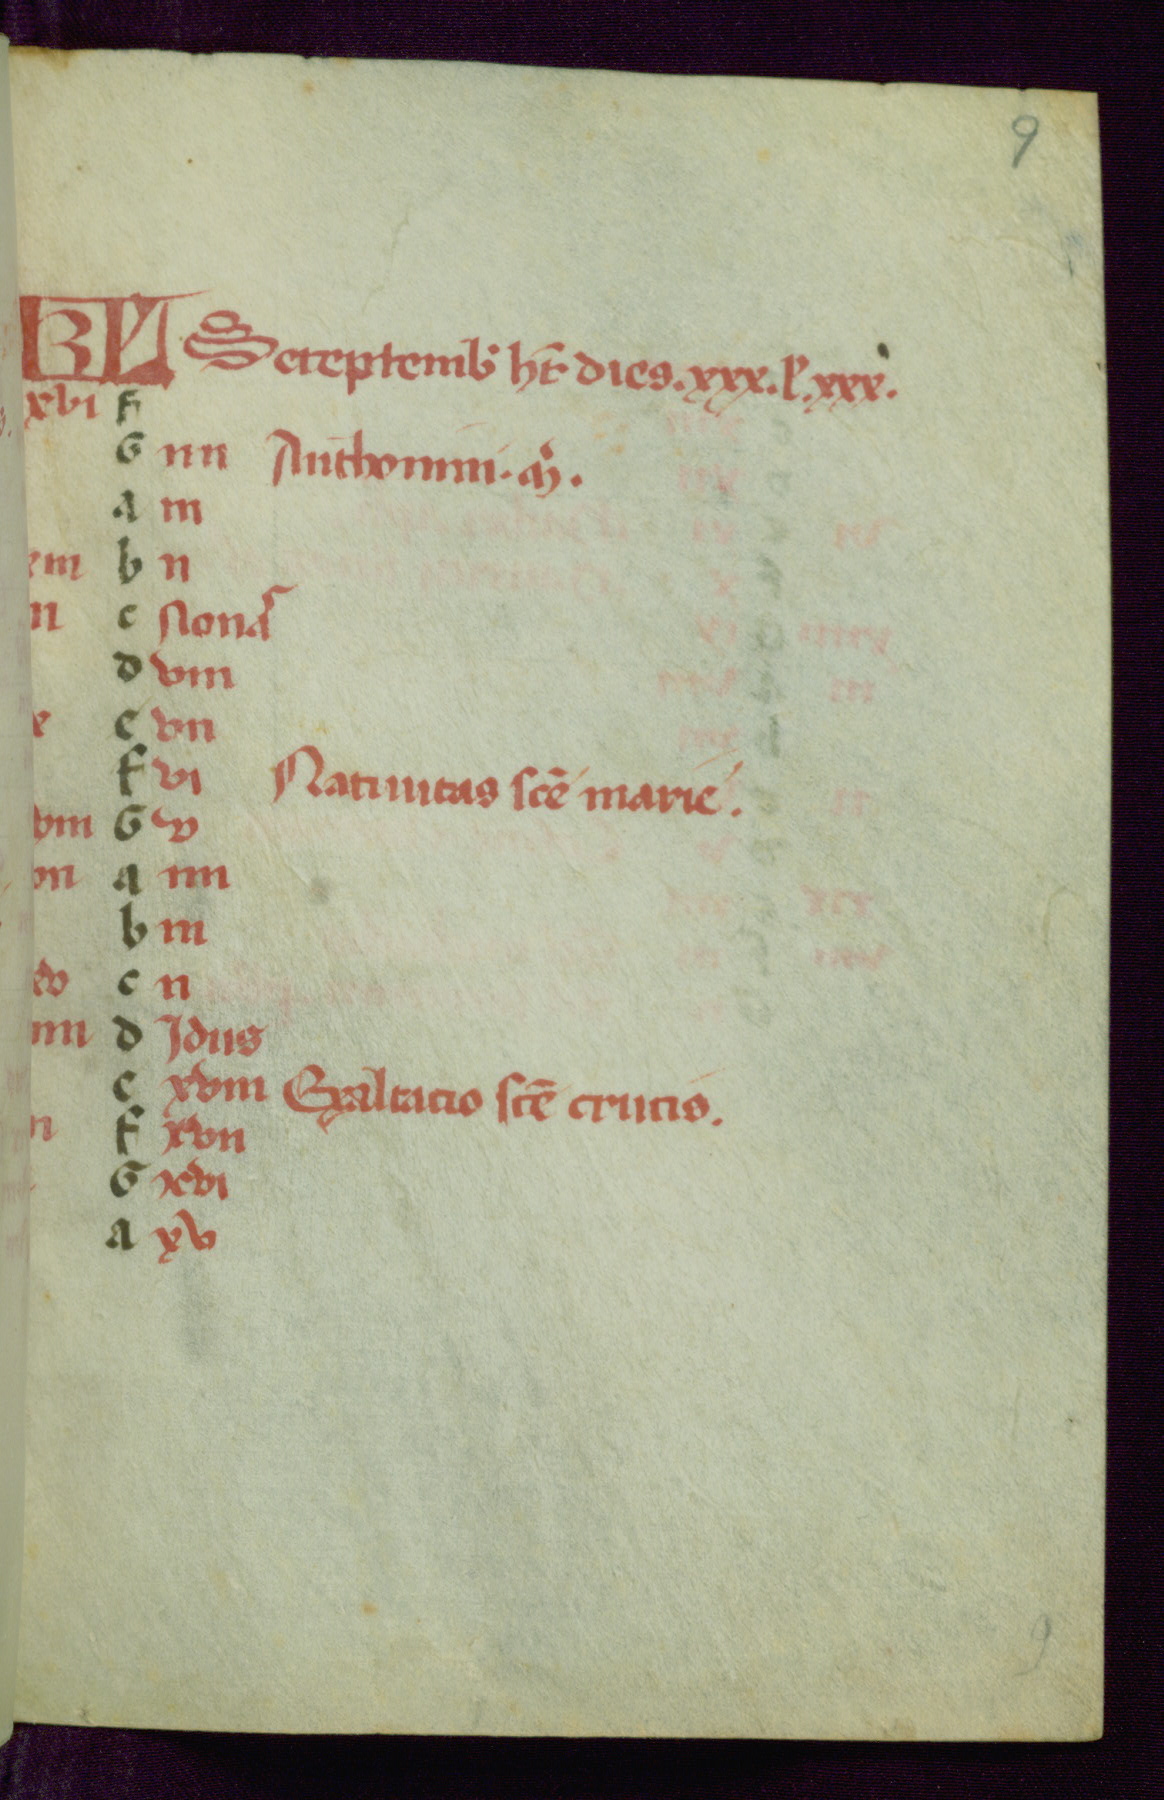 9
KL Seteptembr̄ ht̄ dies.xxx.l᷒.xxx.
xvi f
G iiii Anthonini. m̄.
a iii
b ii
c Nonas
d viii
e vii
f vi Natiuitas sc̄e marie.
viii G v
vii a iiii
b iii
xv c ii
iiii d Idus
e xviii Exaltacio sc̄e crucis.
f xvii
G xvi
a xv
9